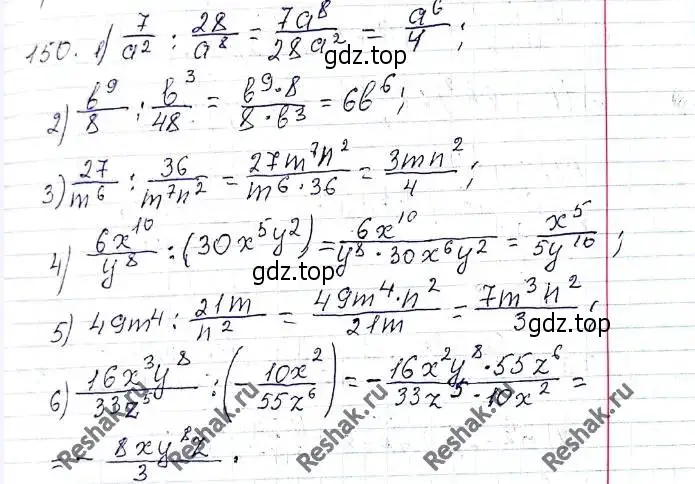 150. 1) 7/a² : 28/a⁸ = 7a⁸/28a² = a⁶/4 ;
гдз.top
2) в⁹/8 : в³/48 = в⁹·8/8·в³ = 6в⁶ ;
3) 27/m⁶ : 36/m⁷n² = 27m⁷n²/m⁶·36 = 3mn²/4 ;
4) 6x¹⁰/y⁸ : (30x⁵y²) = 6x¹⁰/y⁸·30x⁶y² = x⁵/5y¹⁰ ;
гдз.top
5) 49m⁴ : 21m/n² = 49m⁴·n²/21m = 7m³n²/3 ;
гдз.top
6) 16x³y⁸/33z⁵ : (- 10x²/55z⁶) = - 16x²y⁸·55z⁶/33z⁵·10x² =
= - 8xy⁸z/3 .
Reshak.ru
Reshak.ru
Reshak.ru
Reshak.ru